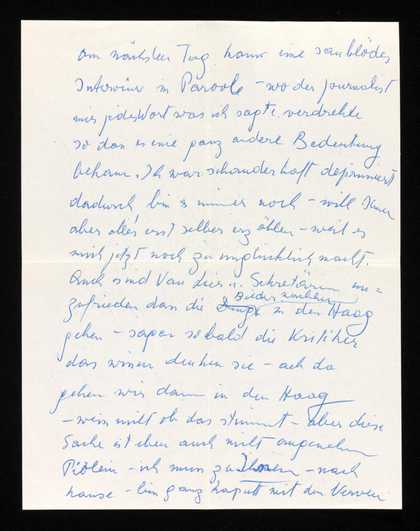 am nächsten Tag kam eine saublödes
Interview in Parool – wo der Journalist
mir jedes Wort was ich sagte verdrehte
so dan es eine ganz andere Bedeutung
bekam. Ich war schauderhaft deprimiert
dadurch bin es immer noch – will Ihnen
aber alles erst selber erzählen – weil es
mich jetzt noch zu unglücklich macht.
Auch sind Van Lier u. Sekretärin un =
zufrieden dan die Bilder nachher in den Haag
gehen – sagen sobald die Kritiker
das wissen denken sie – ach da
gehen wir dann in den Haag
– weis nicht ob das stimmt – aber diese
Sache ist eben auch nicht angenehm
– ich mus zu Ihnen – nach
hause – bin ganz kaputt mit den Nerven